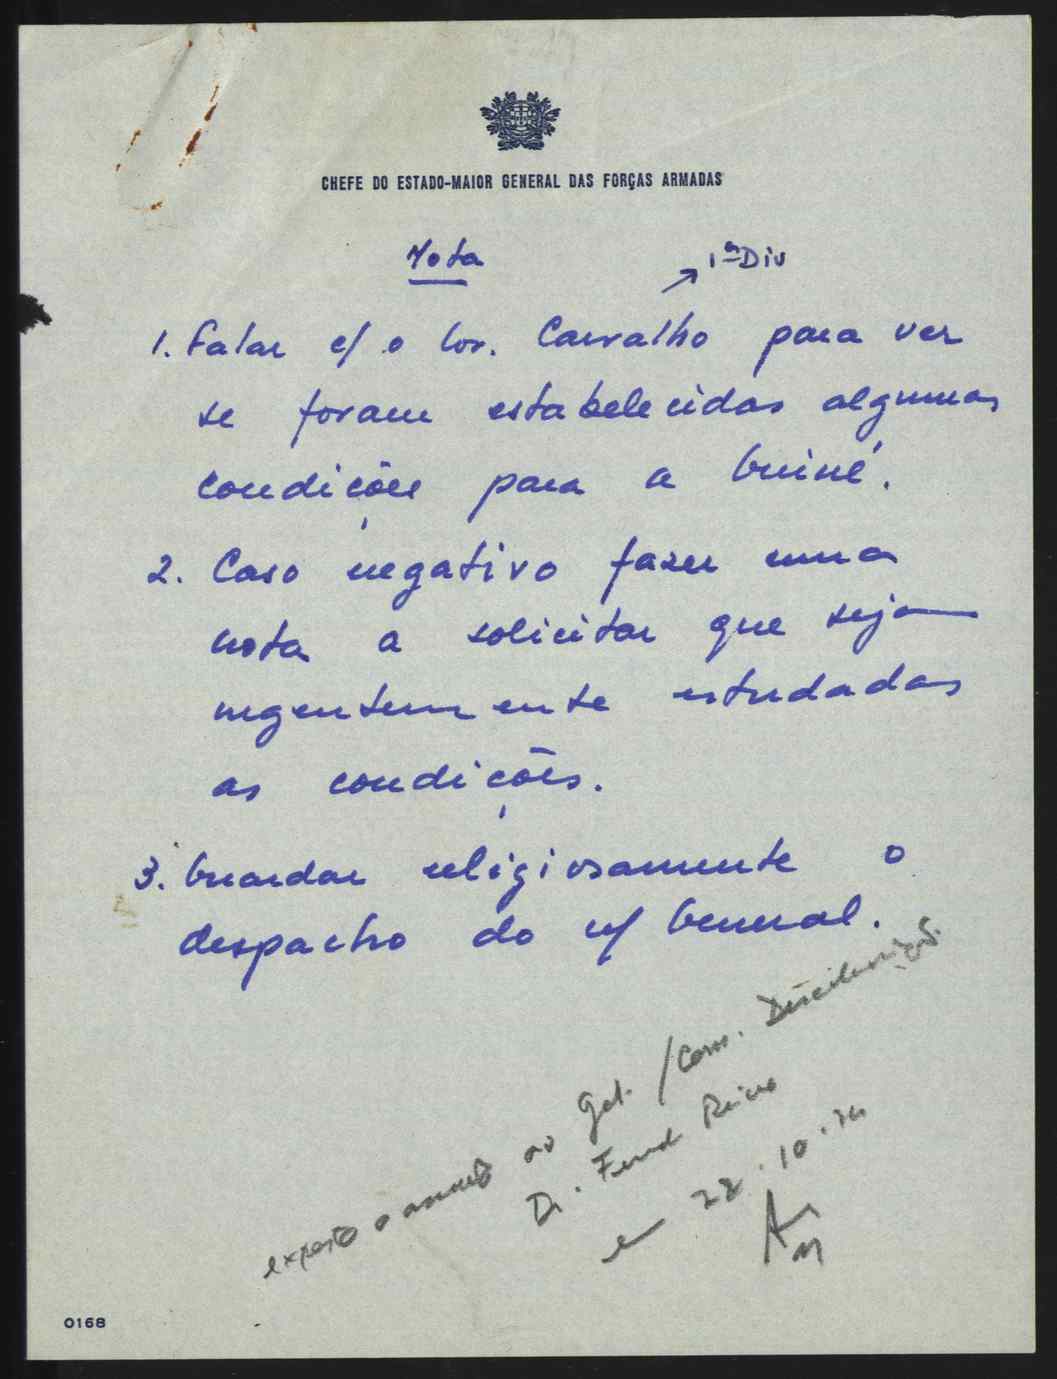 CHEFE DO ESTADO-MAIOR GENERAL DAS FORÇAS ARMADAS
Nota
1ª Div
1. Falar c/ o Cor. Carvalho para ver
se foram estabelecidas algumas
condições para a Guiné.
2. Caso negativo fazer uma
nota a solicitar que sejam
urgentemente estudadas
as condições.
3. Guardar religiosamente o
despacho do n/ General.
exposto o assunto ao Gab. / Com. Descolonização
Dr. Fernd
em 22.10.74
0168